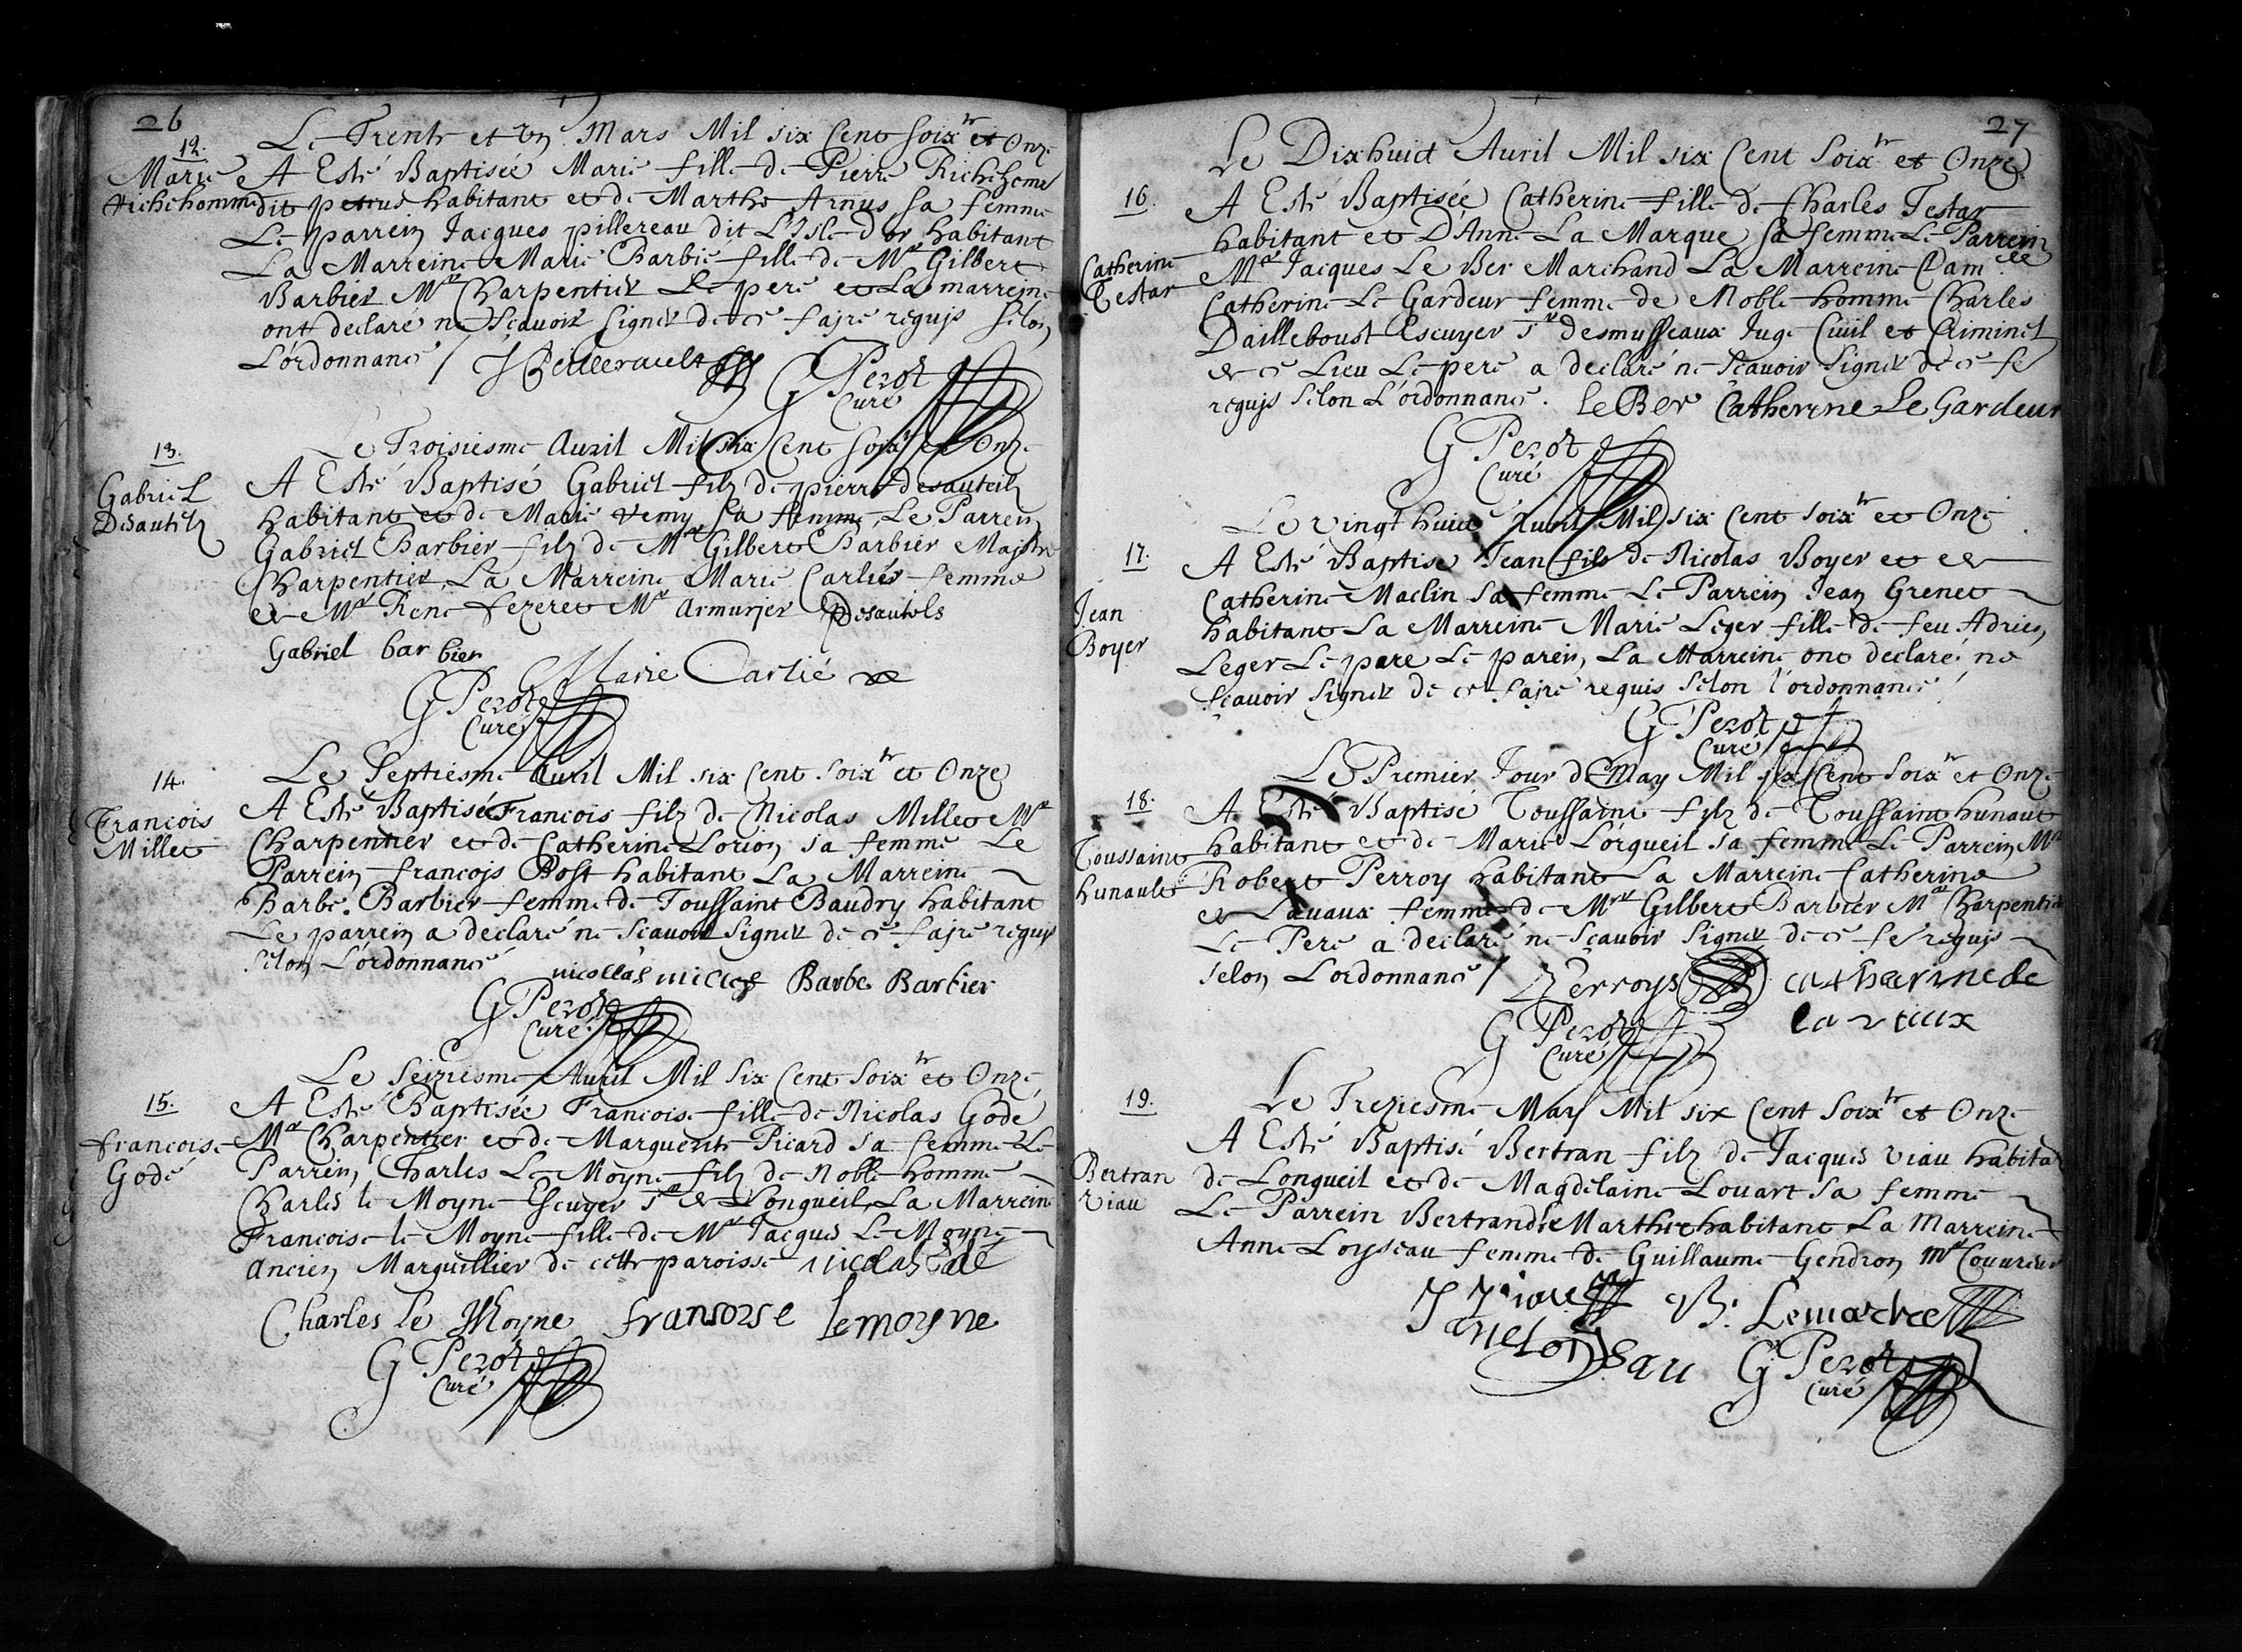 26
12.
Marie
Richehomme
Le Trente et un Mars Mil six Cent soixte et Onze
A Esté Baptisée Marie fille de Pierre Richehome
dit petrus habitant et de Marthe Arnus sa femme
Le parrein Jacques pillereau dit L'Isle d'or habitant
La Marreine Marie Barbié fille de Mre Gilbert
Barbier Mre Charpentier Le pere et La marreine
ont declaré ne sçavoir signer de ce faire requis selon
L'ordonnance / JPeillerault
G Perot
Curé
13.
Gabriel
Desautelz
Le Troisiesme Auril Mil six Cent soixte et Onze
A Esté Baptisé Gabriel filz de pierre desauteilz
habitant et de Marie remy sa femme, Le Parrein
Gabriel Barbier filz de Mre Gilbert Barbier Majstre
Charpentier, La Marreine Marie Carlier femme
de Mre René fezeret Mre Armurjer PDesautels
Gabriel barbier
Marie Carlié
G Perot
Curé
14.
Francois
Millet
Le Septiesme Auril Mil six Cent soixte et Onze
A Esté Baptisé Francois filz de Nicolas Millet Mre
Charpentier et de Catherine Lorion sa femme Le
Parrein francojs Bost habitant La Marreine
Barbe Barbier femme de Toussaint Baudry habitant
Le parrein a declaré ne sçavoir signer de ce fajre requis
selon L'ordonnance
nicollas millet Barbe Barbier
G Perot
Curé
15.
francoise
Godé
Le Seiziesme Auril Mil Six Cent Soixte et Onze
A Esté Baptisée Francoise fille de Nicolas Godé
Mre Charpentier et de Marguerite Picard sa femme Le
Parrein Charles Le Moyne filz de Noble homme
Charles le Moyne Escuyer Sr de Longueil, La Marreine
Francoise le Moyne fille de Mre Jacques Le Moyne
Ancien Marguillier de cette paroisse nicolas Godé
Charles le Moyne fransoise lemoyne
G Perot
Curé
27
16.
Catherine
Testar
Le Dixhuict Auril Mil six Cent Soixte et Onze
A Esté Baptisée Catherine fille de Charles Testar
habitant et D'Anne La Marque sa femme Le Parrein
Mre Jacques Le Ber Marchand La Marreine Damlle
Catherine Le Gardeur femme de Noble homme Charles
Dailleboust Escuyer Sr desmusseaux Juge Ciuil et Criminel
de ce Lieu Le pere a declaré ne sçavoir signer de ce fe
requis selon L'ordonnance. leBer Catherine Le Gardeur
G Perot
Curé
17.
Jean
Boyer
Le vingt huict Auril Mil six Cent Soixte et Onze
A Esté Baptisé Jean fils de Nicolas Boyer et de
Catherine Maclin sa femme Le Parrein Jean Grenet
habitant La Marreine Marie Leger fille de feu Adrien
Leger Le pere Le parein, La Marreine ont declaré ne
sçavoir signer de ce fajre requis selon l'ordonnance
G Perot
Curé
18.
Toussaint
hunault
Le Premier Jour de May Mil six Cent Soixte et Onze
A Esté Baptisé Toussaint filz de Toussaint hunaut
habitant et de Marie Lorgueil sa femme Le Parrein Mre
Robert Perroy habitant La Marreine Catherine
de Lavaux femme de Mre Gilbert Barbier Mre Charpentier
Le Pere a declaré ne sçavoir signer de ce fe requis
selon Lordonnance / Perroys catherine de
lavaux
G Perot
Curé
19.
Bertran
Viau
Le Treziesme May Mil six Cent Soixte et Onze
A Esté Baptisé Bertran filz de Jacques viau habitant
de Longueil et de Magdelaine Louart sa femme
Le Parrein Bertrand le Marthre habitant La Marreine
Anne Loyseau femme de Guillaume Gendron Mre Couureur
J Viau B. Lemartre
aneloyseau G Perot
Curé